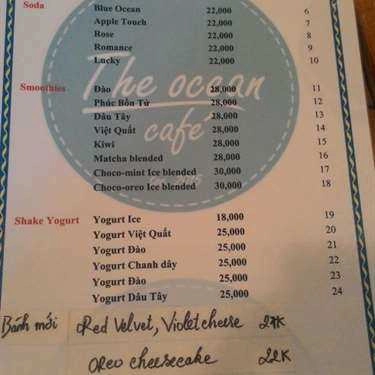 Soda Blue Ocean 22,000 6
Apple Touch 22,000 7
Rose 22,000 8
Romance 22,000 9
Lucky 22,000 10
The ocean
café
Smoothies Đào 28,000 11
Phúc Bồn Tử 28,000 12
Dâu Tây 28,000 13
Việt Quất 28,000 14
Kiwi 28,000 15
Matcha blended 28,000 16
Choco-mint Ice blended 30,000 17
Choco-oreo Ice blended 30,000 18
Shake Yogurt Yogurt Ice 18,000 19
Yogurt Việt Quất 25,000 20
Yogurt Đào 25,000 21
Yogurt Chanh dây 25,000 22
Yogurt Đào 25,000 23
Yogurt Dâu Tây 25,000 24
Bánh mới Red Velvet, Violet cheese 27K
Oreo cheesecake 22K